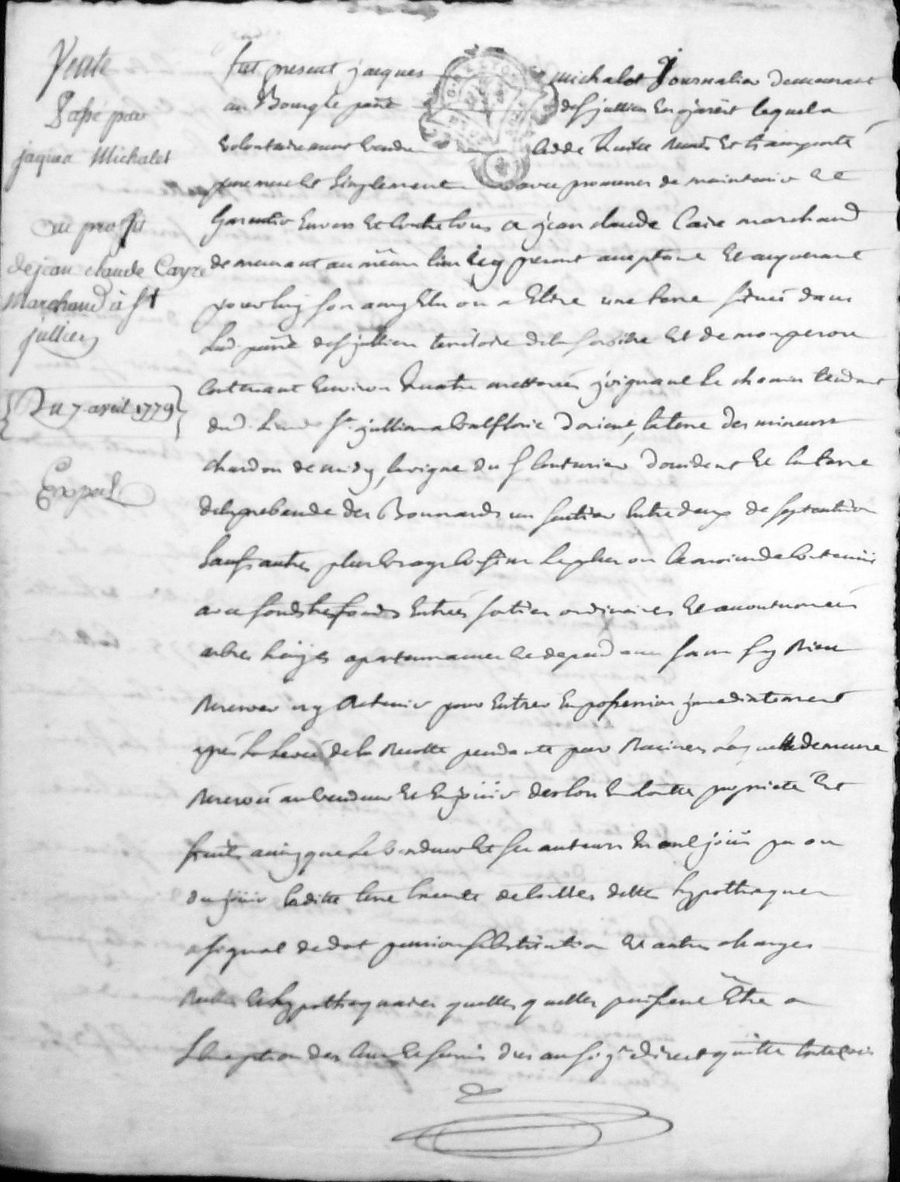 Vente
Passé par
jaques Michalet
au proffit
de jean claude Cayre
Marchand à st
jullien
Du 7 avril 1779
Exped
fut present jaques michalet Journalier demeurant
au Bourg & parr de st jullien en jarret lequel a
volontairement vendu cedde quitte remis et transporté
purement et simplement avec promesse de maintenir et
garentir envers et contre tous a jean claude Caire marchand
demeurant au même lieu icy present acceptant et acquerant
pour luy son amy elu ou a elire une terre situés dans
lad parr de st jullien territoire de la et de monperou
contenant environ quatre metterées joignant le chemin tendant
dud lieu st jullien a de orient, la terre des mineurs
chardon de midy, la vigne du sr couturier d'occident et la terre
de la prebande des Bonnards un sentier entre deux de septentrion
sauf autres plus vrays confins le plus ou le moins de contenu
avec fonds trefonds entrées sorties ordinaires et acoutumées
arbres appartenances et dependances sans s'y rien
reserver n'y retenir pour entrer en possession jmediatement
après la levée de la recolte pendante par racines laquelle demeure
reservée au vendeur et en jouir dès lors en toutte proprieté et
fruits ainsy que le vendeur et ses auteurs en ont joüi pu ou
du jouir laditte terre exempte de touttes dette hypotheques
assignat de dot pension substitution et autres charges
reelles et hypothequaires quelles quelles puissent être a
l'exception des cens et servis dus au sgr direct quitte touttefois